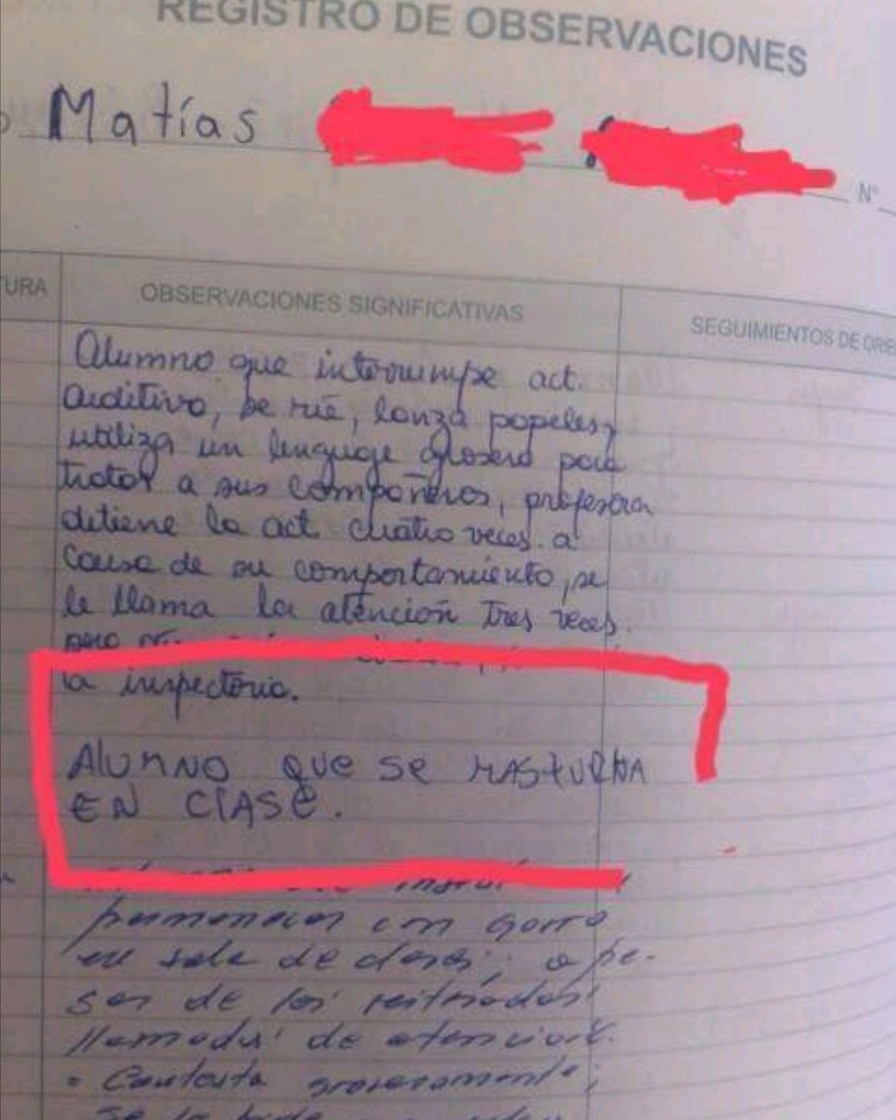 REGISTRO DE OBSERVACIONES
Matías
N°
TURA
OBSERVACIONES SIGNIFICATIVAS
SEGUIMIENTOS DE ORIE
Alumno que interrumpe act.
auditivo, se rie, lanza papeles,
utiliza un lenguaje grosero para
tratar a sus compañeros, profesora
detiene la act. cuatro veces a
causa de su comportamiento, se
le llama la atención tres veces.
pero
la inspectoria.
ALUMNO que se MASTURBA
EN CLASE.
permanecer con gorro
en sala de clases; a pe-
sar de los reiterados
llamados de atención.
Contesta groseramente;